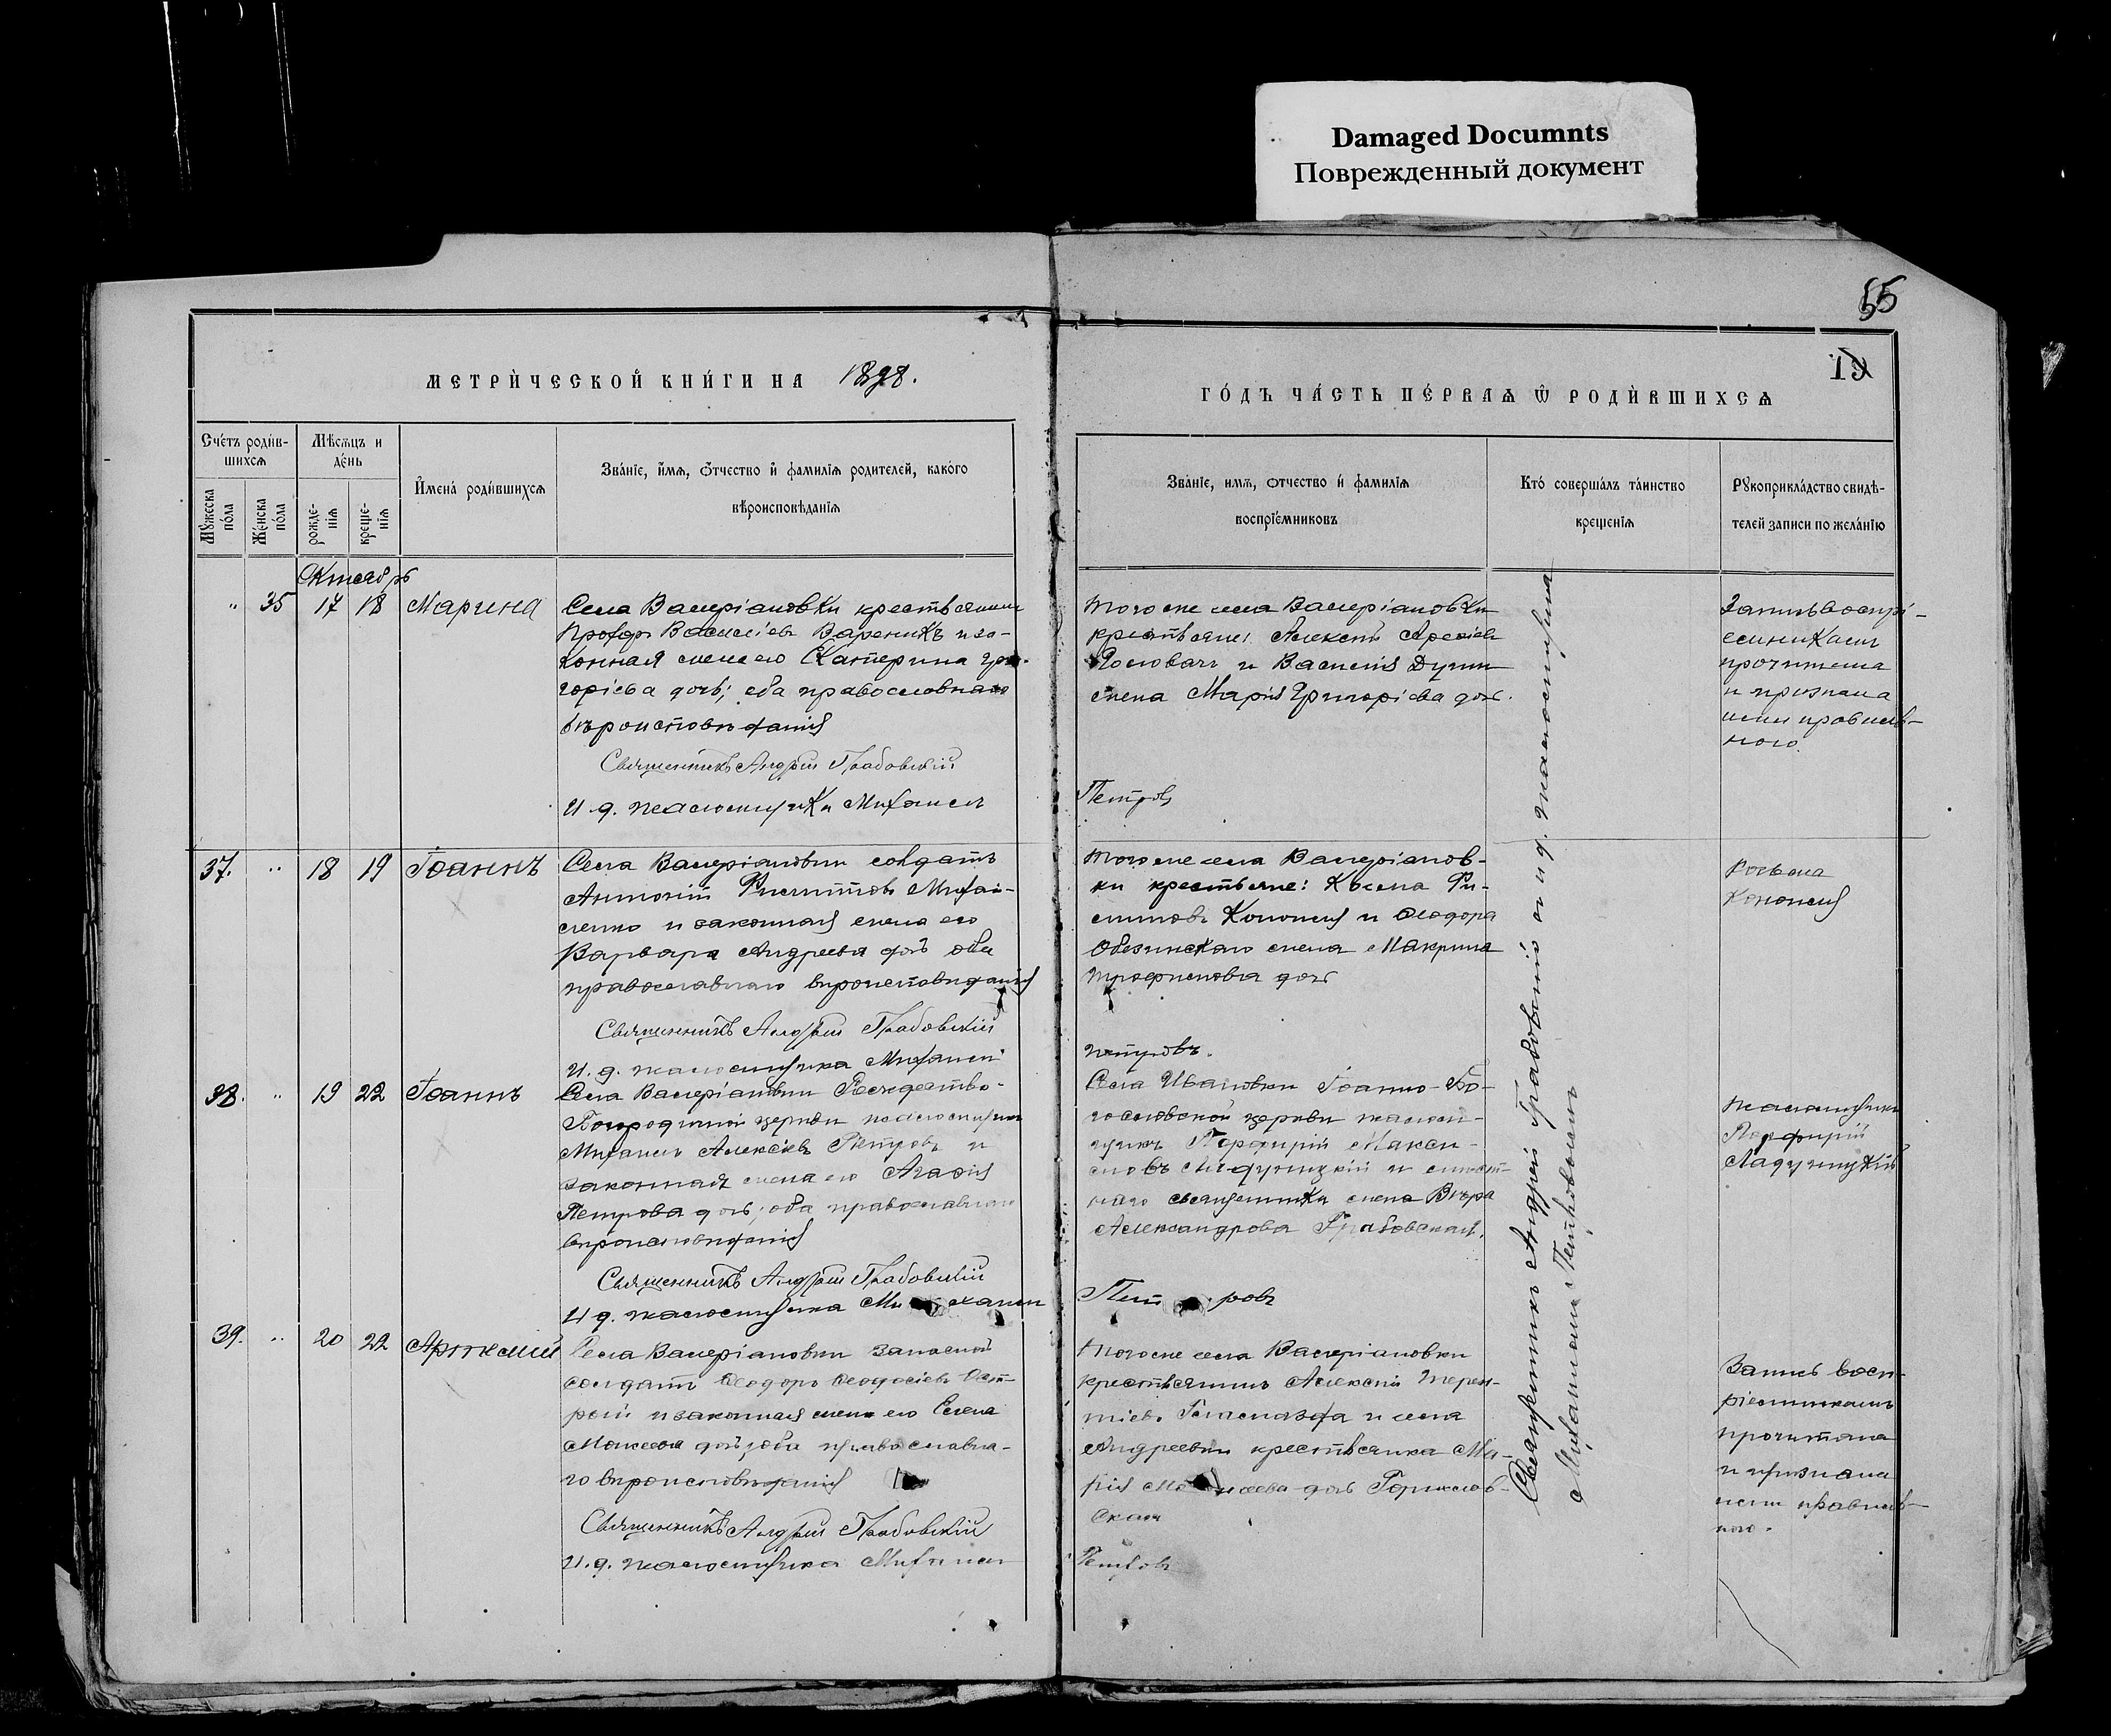 Damaged Documnts
Поврежденный документ
55
19
МЕТРИЧЕСКОЙ КНИГИ НА 1898.
ГОДЪ ЧАСТЬ ПЕРВАѦ Ѿ РОДИВШИХСѦ
Счетъ родив-
шихсѧ
Мѣсѧцъ и
день
Мꙋжеска
пола
Женска
пола
рожде-
нїѧ
креще-
нїѧ
Имена родившихсѧ
Званїе, имѧ, ѿтчество и фамилїѧ родителей, какого
вѣроисповѣданїѧ
Званїе, имѧ, отчество и фамилїѧ
воспрїемниковъ
Кто совершалъ таинство
крещенїѧ
Рꙋкоприкладство свидѣ-
телей записи по желанїю
Октябрь
" 35 17 18 Марина
Села Валеріановки крестьянинъ
Василіевъ Вареникъ и за-
конная жена его Екатерина Гри-
горіева дочь; оба православнаго
вѣроисповѣданія
Священникъ Андрей Грабовскій
И. д. псаломщика Михаилъ
Тогоже села Валеріановки
крестьяне: Алексѣй
Головачъ и Василія
жена Марія Григоріева дочь.
Петровъ
Запись воспрі-
емниками
прочитана
и признана
ими правиль-
ною.
37. " 18 19 Іоаннъ
Села Валеріановки солдатъ
Антоній Филипповъ Михай-
ленко и законная жена его
Варвара Андреева дочь оба
православнаго вѣроисповѣданія
Священникъ Андрей Грабовскій
И. д. псаломщика Михаилъ
Тогоже села Валеріанов-
ки крестьяне: Косьма Фи-
липповъ Кононенко и Ѳеодора
жена Макрина
Трофимова дочь
Петровъ.
Косьма
38. " 19 22 Іоаннъ
Села Валеріановки Рождество-
Богородичной церкви псаломщикъ
Михаилъ Алексѣевъ Петровъ и
законная жена его Агафія
Петрова дочь; оба православнаго
вѣроисповѣданія
Священникъ Андрей Грабовскій
И д. псаломщика Михаилъ
Села Ивановки Іоанно-Бо-
гословской церкви псалом-
щикъ Порфирій Макси-
мовъ и мѣст-
наго священника жена Вѣра
Александрова Грабовская.
Петровъ
Псаломщикъ
Порфирій
39. " 20 22 Артемій
Села Валеріановки запасной
солдатъ Ѳеодоръ Ѳеодосіевъ Ост-
рый и законная жена его Елена
Моисеева дочь; оба православна-
го вѣроисповѣданія
Священникъ Андрей Грабовскій
И. д. псаломщика Михаилъ
Тогоже села Валеріановки
крестьянинъ Алексѣй Терен-
тіевъ и села
Андреевки крестьянка Ма-
рія Моисеева дочь
Петровъ
Запись восп-
ріемниками
прочитана
и признана
ими правиль-
ною.
Священникъ Андрей Грабовскій съ и. д. псаломщика
Михаиломъ Петровымъ